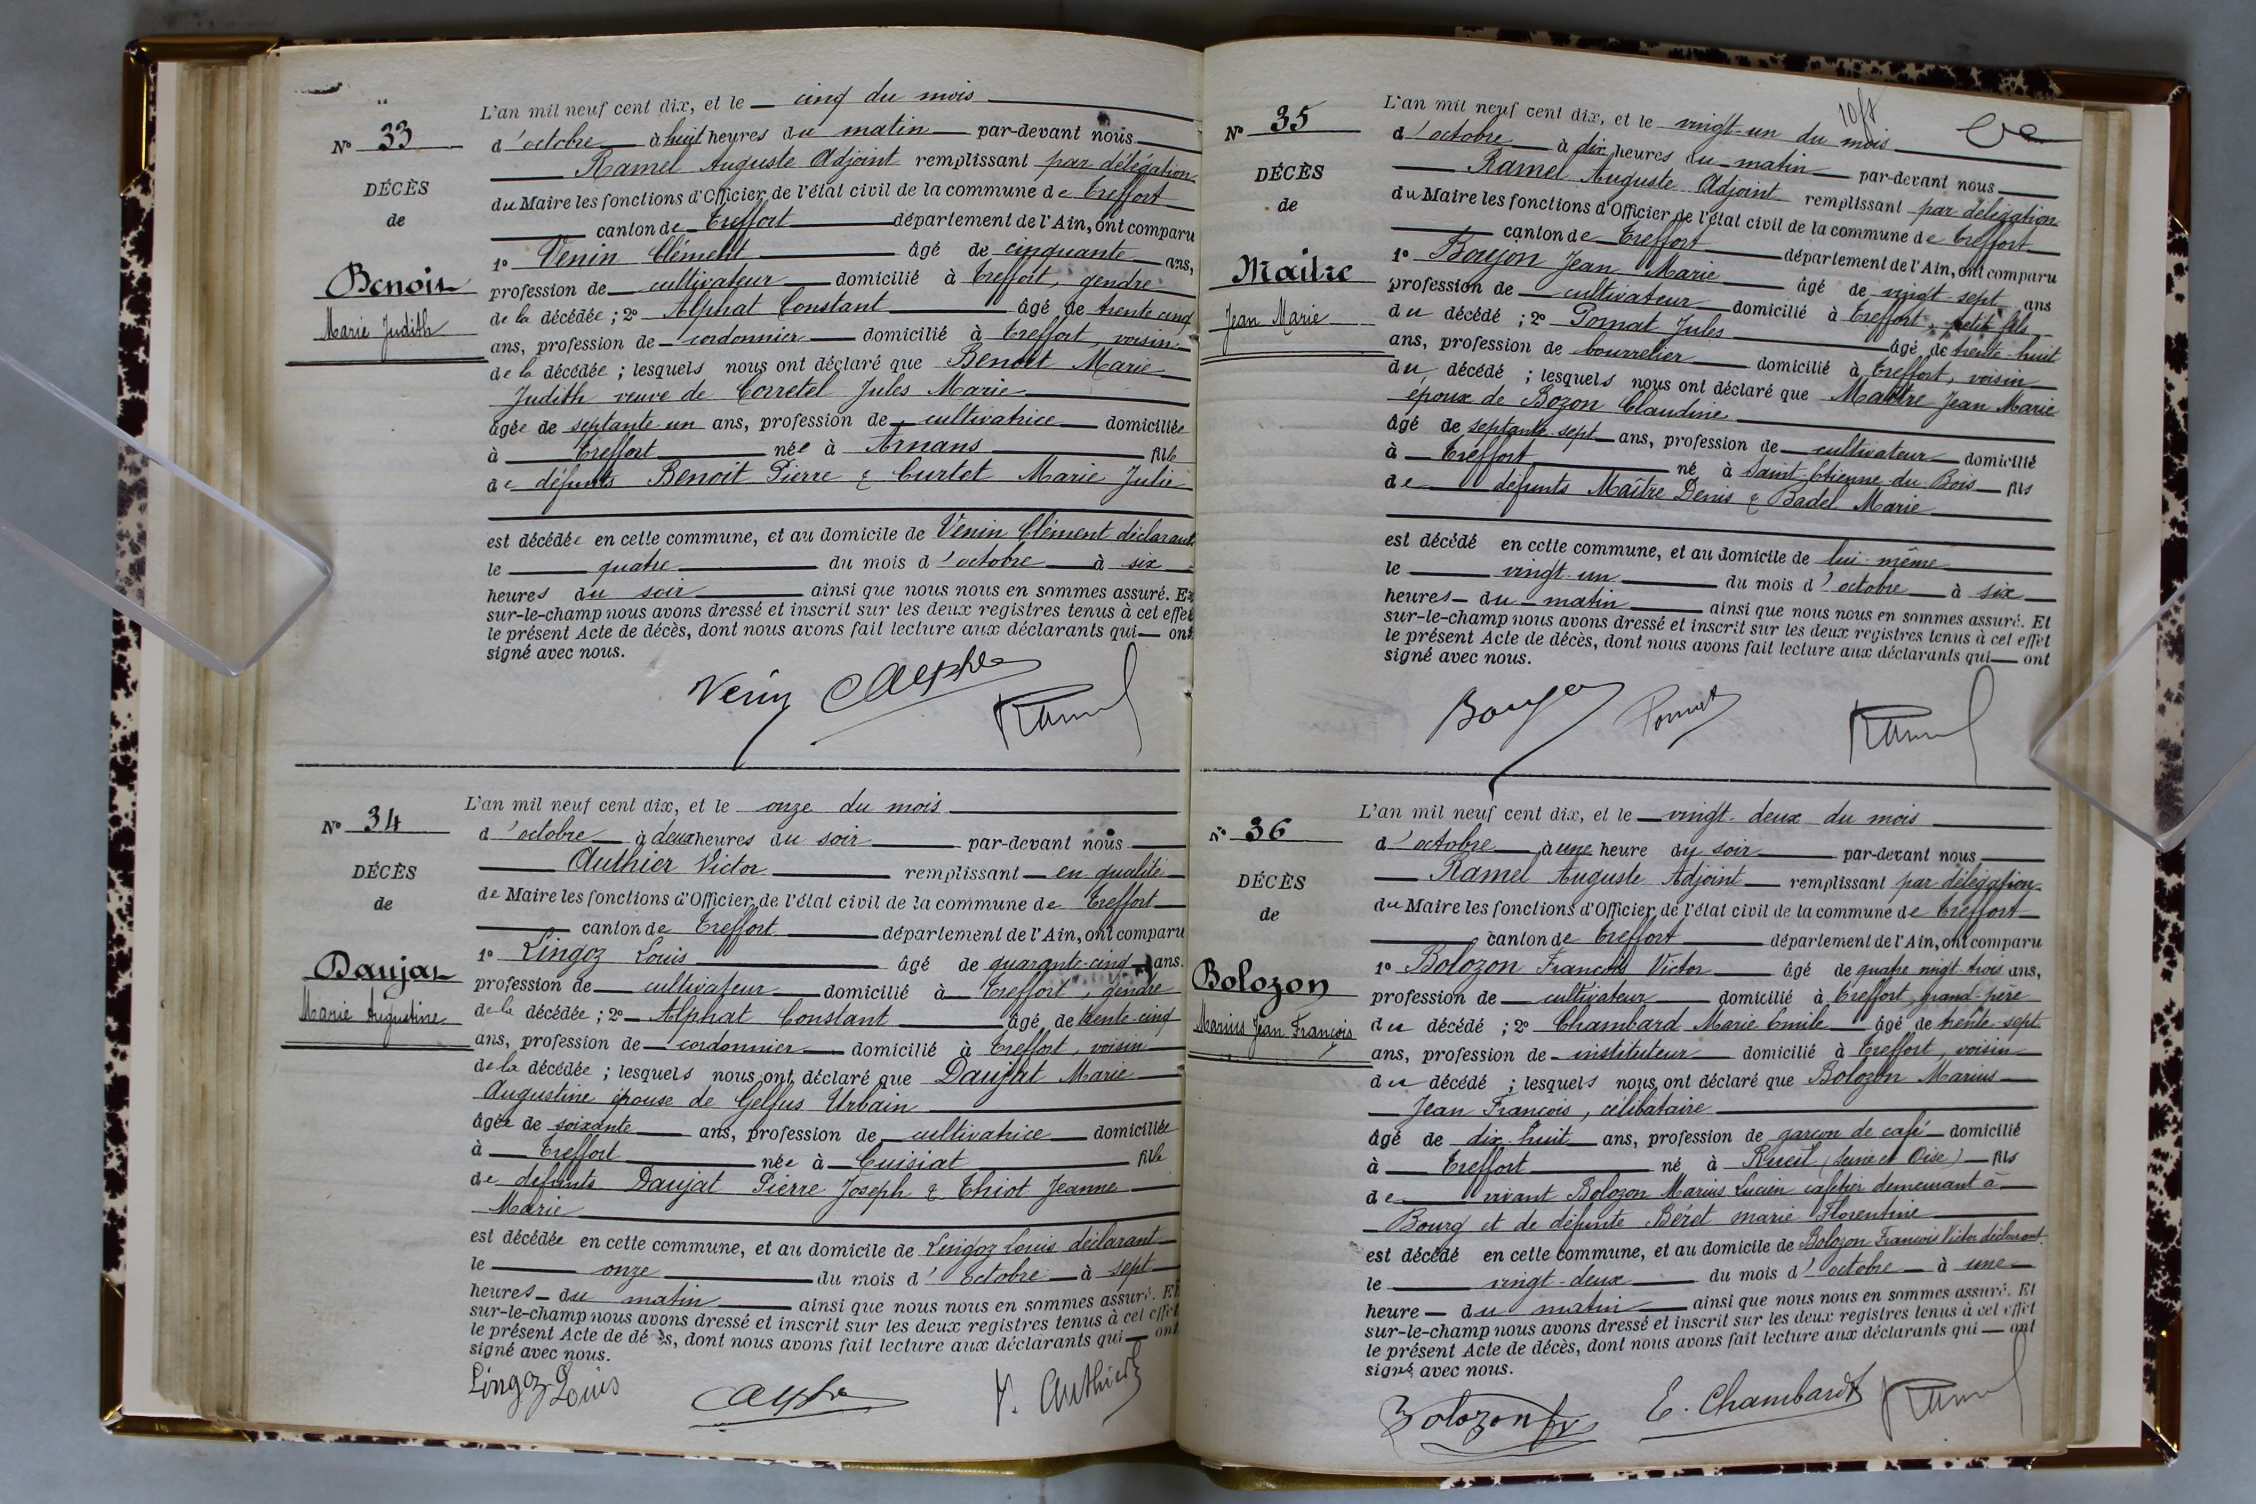 N° 33
DÉCÈS
de
Benoit
Marie Judith
L'an mil neuf cent dix, et le cinq du mois
d'octobre à huit heures du matin par-devant nous
Ramel Auguste Adjoint remplissant par délégation
du Maire les fonctions d'Officier de l'état civil de la commune de Treffort
canton de Treffort département de l'Ain, ont comparu
1° Venin Clément âgé de cinquante ans,
profession de cultivateur domicilié à Treffort, gendre
de la décédée ; 2° Alphat Constant âgé de trente cinq
ans, profession de cordonnier domicilié à Treffort, voisin
de la décédée ; lesquels nous ont déclaré que Benoit Marie
Judith veuve de Corretel Jules Marie
âgée de septante un ans, profession de cultivatrice domiciliée
à Treffort née à Arnans fille
de défunts Benoit Pierre & Curtet Marie Julie
est décédée en cette commune, et au domicile de Venin Clément déclarant
le quatre du mois d'octobre à six
heures du soir ainsi que nous nous en sommes assuré. Et
sur-le-champ nous avons dressé et inscrit sur les deux registres tenus à cet effet
le présent Acte de décès, dont nous avons fait lecture aux déclarants qui ont
signé avec nous.
Venin CAlpha Ramel
N° 34
DÉCÈS
de
Daujat
Marie Augustine
L'an mil neuf cent dix, et le onze du mois
d'octobre à deux heures du soir par-devant nous
Authier Victor remplissant en qualité
de Maire les fonctions d'Officier de l'état civil de la commune de Treffort
canton de Treffort département de l'Ain, ont comparu
1° Lingoz Louis âgé de quarante-cinq ans.
profession de cultivateur domicilié à Treffort, gendre
de la décédée ; 2° Alphat Constant âgé de trente-cinq
ans, profession de cordonnier domicilié à Treffort, voisin
de la décédée ; lesquels nous ont déclaré que Daujat Marie
Augustine épouse de Gelfus Urbain
âgée de soixante ans, profession de cultivatrice domiciliée
à Treffort née à Cuisiat fille
de défunts Daujat Pierre Joseph & Thiot Jeanne
Marie
est décédée en cette commune, et au domicile de Lingoz Louis déclarant
le onze du mois d'octobre à sept
heures du matin ainsi que nous nous en sommes assuré. Et
sur-le-champ nous avons dressé et inscrit sur les deux registres tenus à cet effet
le présent Acte de décès, dont nous avons fait lecture aux déclarants qui ont
signé avec nous.
Lingoz Louis CAlpha V. Authier
N° 35
DÉCÈS
de
Maître
Jean Marie
L'an mil neuf cent dix, et le vingt-un du mois
d'octobre à dix heures du matin par-devant nous
Ramel Auguste Adjoint remplissant par délégation
du Maire les fonctions d'Officier de l'état civil de la commune de Treffort
canton de Treffort département de l'Ain, ont comparu
1° Boujon Jean Marie âgé de vingt-sept ans
profession de cultivateur domicilié à Treffort, petit fils
du décédé ; 2° Pomat Jules âgé de trente-huit
ans, profession de bourrelier domicilié à Treffort, voisin
du décédé ; lesquels nous ont déclaré que Maître Jean Marie
époux de Bozon Claudine
âgé de septante-sept ans, profession de cultivateur domicilié
à Treffort né à Saint-Etienne-du-Bois fils
de défunts Maître Denis & Badel Marie
est décédé en cette commune, et au domicile de lui-même
le vingt-un du mois d'octobre à six
heures du matin ainsi que nous nous en sommes assuré. Et
sur-le-champ nous avons dressé et inscrit sur les deux registres tenus à cet effet
le présent Acte de décès, dont nous avons fait lecture aux déclarants qui ont
signé avec nous.
Boujon Pomat Ramel
N° 36
DÉCÈS
de
Bolozon
Marius Jean François
L'an mil neuf cent dix, et le vingt-deux du mois
d'octobre à une heure du soir par-devant nous
Ramel Auguste Adjoint remplissant par délégation
du Maire les fonctions d'Officier de l'état civil de la commune de Treffort
canton de Treffort département de l'Ain, ont comparu
1° Bolozon François Victor âgé de quatre vingt-trois ans,
profession de cultivateur domicilié à Treffort, grand-père
du décédé ; 2° Chambard Marie Emile âgé de trente-sept
ans, profession de instituteur domicilié à Treffort, voisin
du décédé ; lesquels nous ont déclaré que Bolozon Marius
Jean François, célibataire
âgé de dix-huit ans, profession de garçon de café domicilié
à Treffort né à Rueil (Seine et Oise) fils
de vivant Bolozon Marius Lucien cafetier demeurant à
Bourg et de défunte Béret marie Florentine
est décédé en cette commune, et au domicile de Bolozon François Victor déclarant
le vingt-deux du mois d'octobre à une
heure du matin ainsi que nous nous en sommes assuré. Et
sur-le-champ nous avons dressé et inscrit sur les deux registres tenus à cet effet
le présent Acte de décès, dont nous avons fait lecture aux déclarants qui ont
signé avec nous.
Bolozon fv E. Chambard Ramel